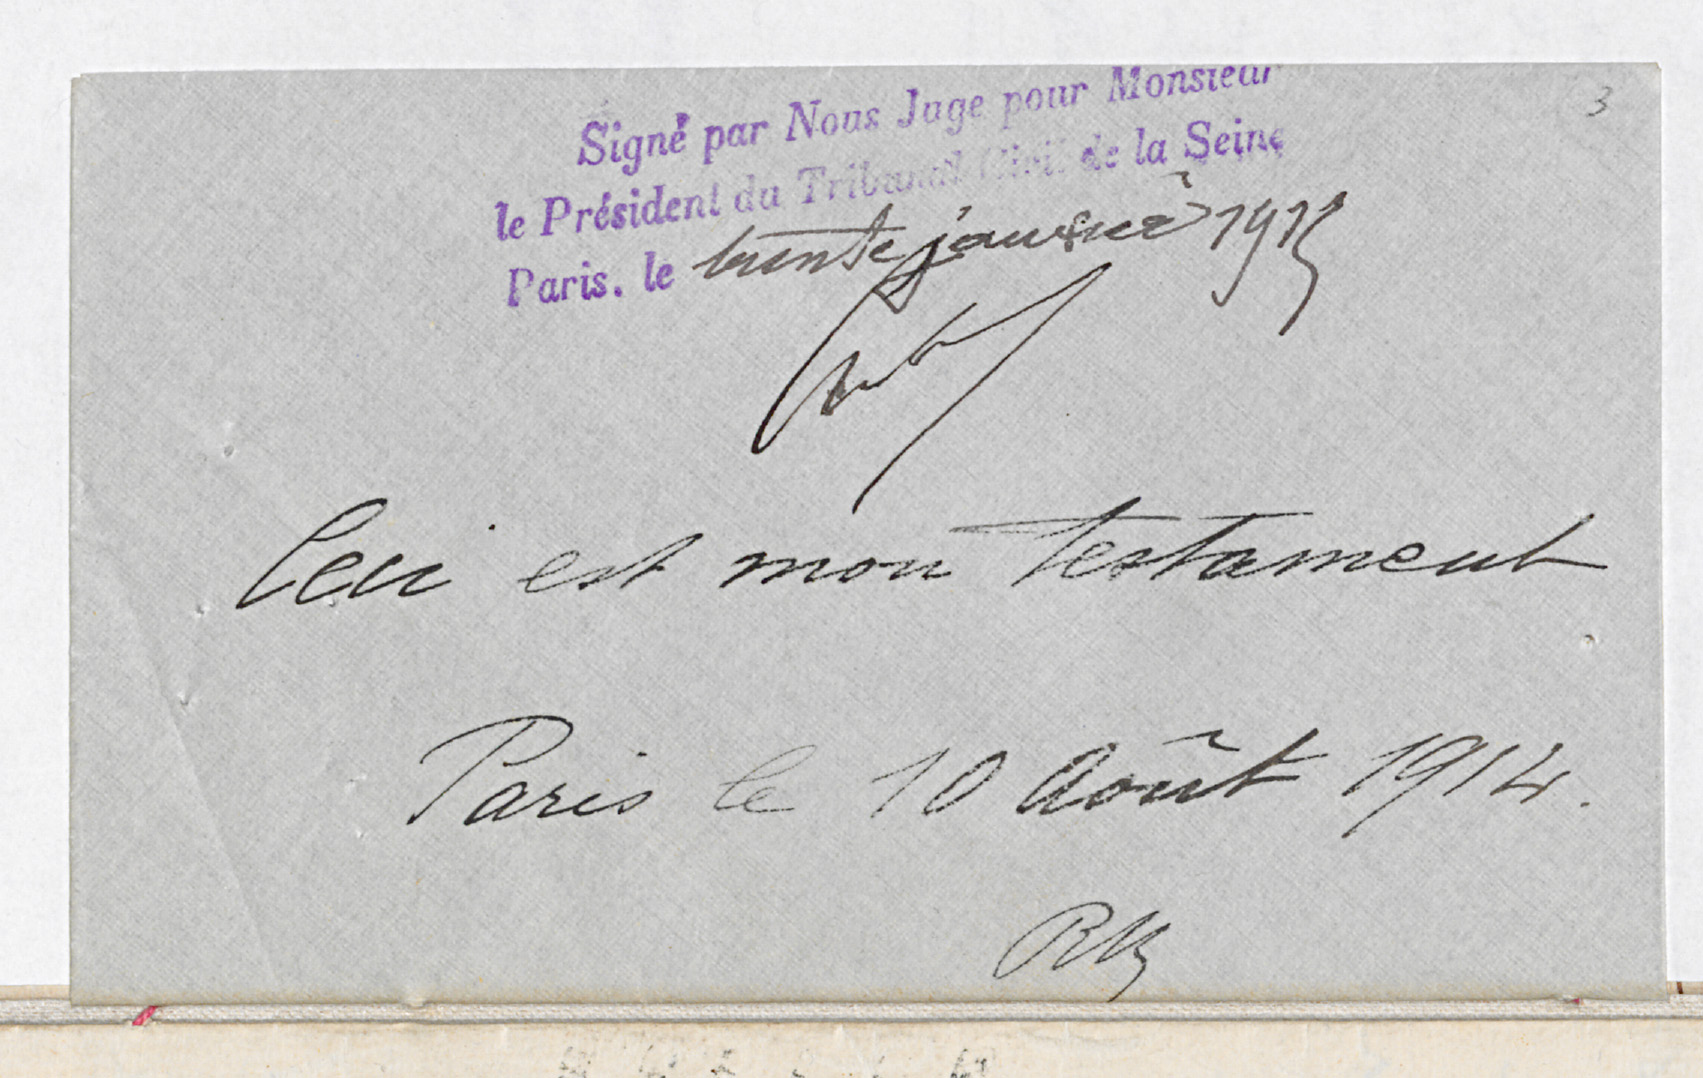 3
Signé par Nous Juge pour Monsieur
le Président du Tribunal Civil de la Seine
Paris. le trente janvier 1915
Ceci est mon testament
Paris le 10 Août 1914.